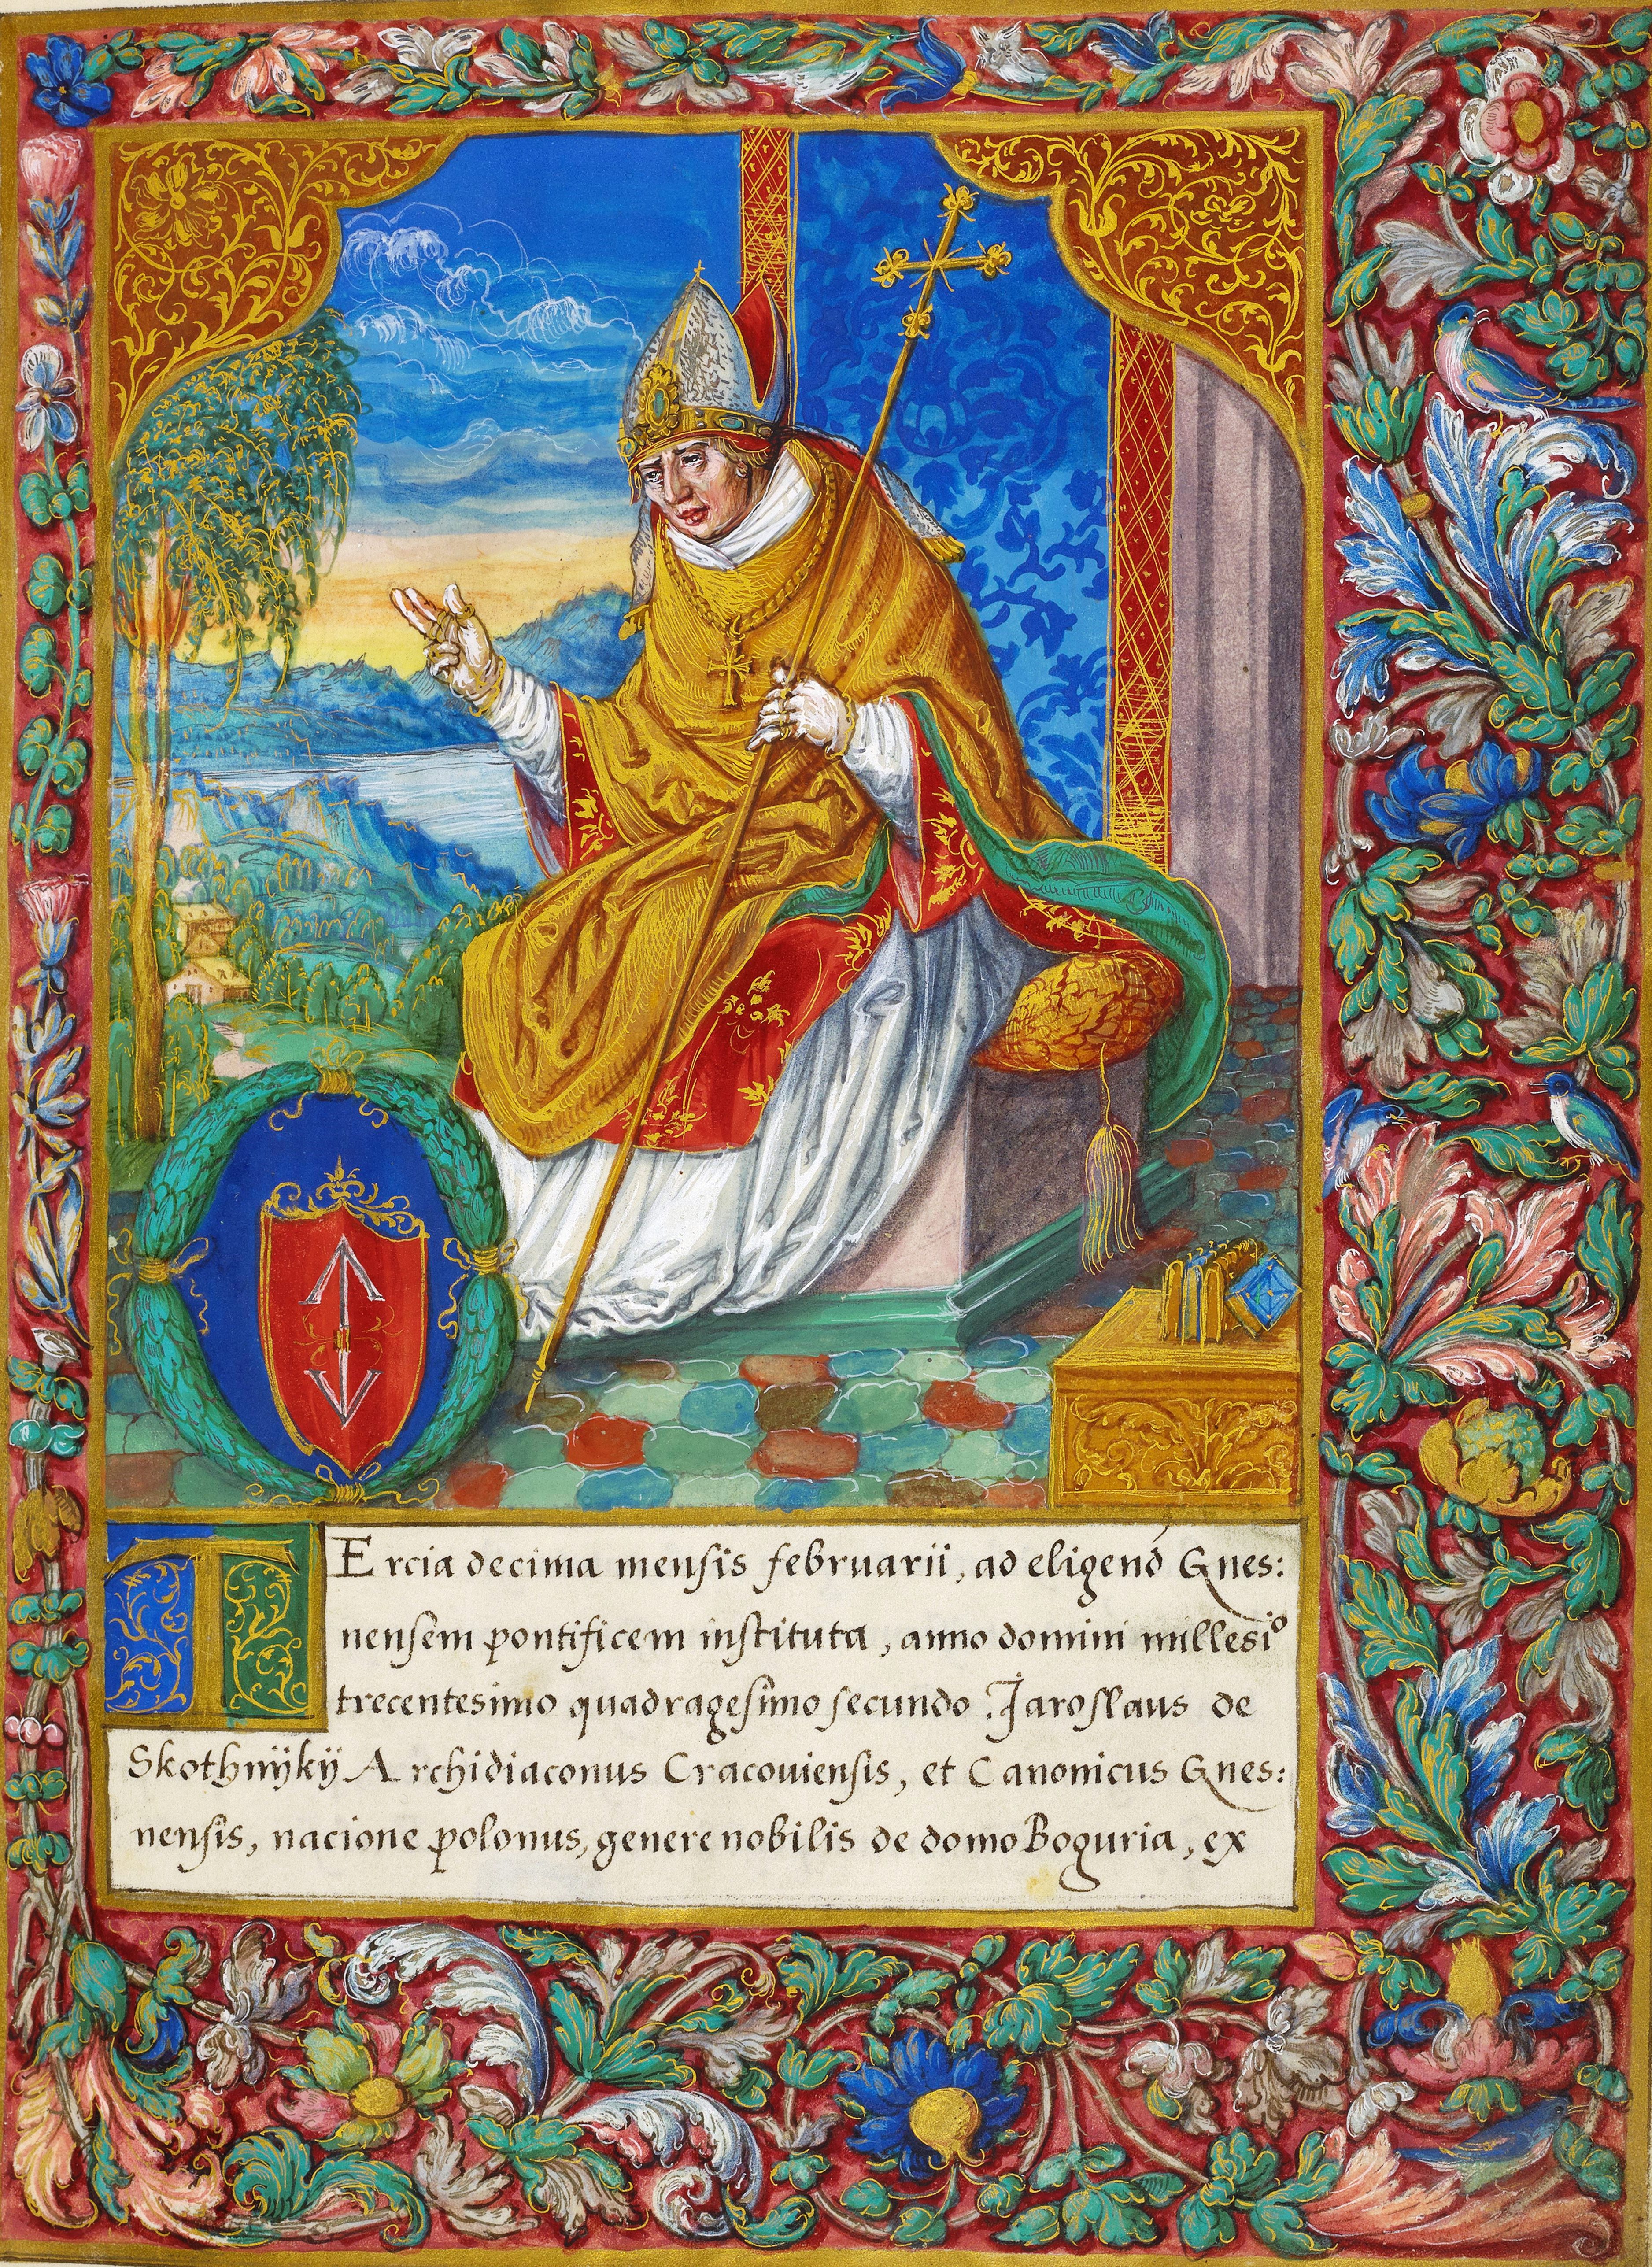 TErcia decima mensis februarii, ad eligend Gnes:
nensem pontificem instituta, anno domini millesi°
trecentesimo quadragesimo secundo Jaroslaus de
Skothnÿkÿ Archidiaconus Cracouiensis, et Canonicus Gnes:
nensis, nacione polonus, genere nobilis de domo Boguria, ex